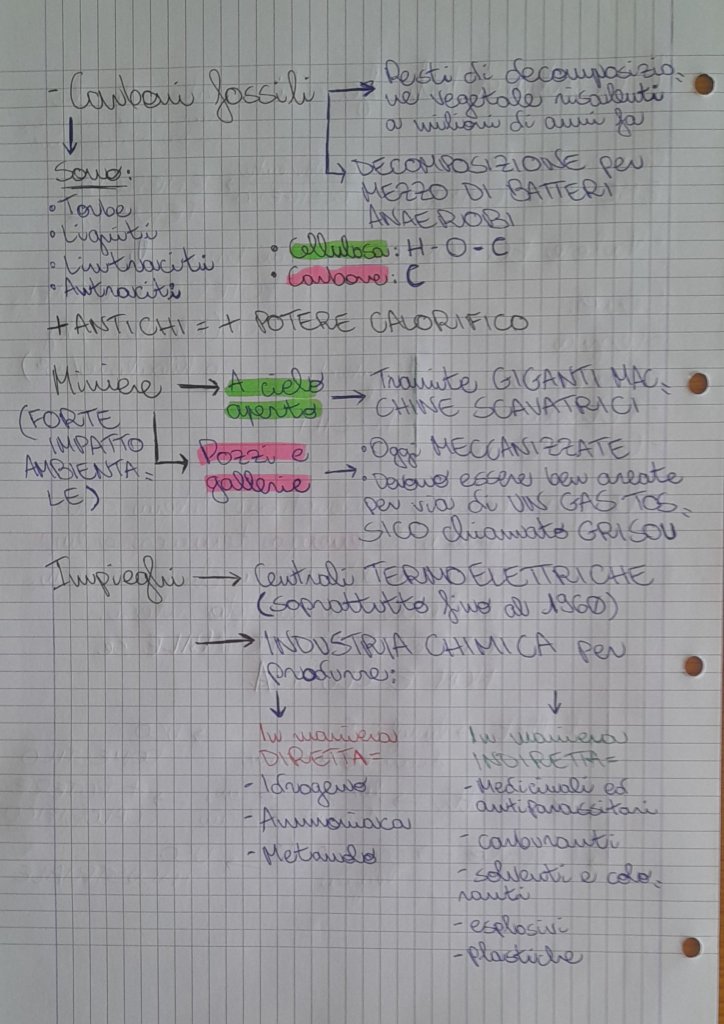 - Carboni fossili
Resti di decomposizio=
ne vegetale risalenti
a milioni di anni fa
DECOMPOSIZIONE per
MEZZO DI BATTERI
ANAEROBI
Sono:
• Torbe
• Ligniti
• Lintraciti
• Antraciti
• Cellulosa: H-O-C
• Carbone: C
+ ANTICHI = + POTERE CALORIFICO
Miniere
(FORTE
IMPATTO
AMBIENTA=
LE)
A cielo
aperto
Tramite GIGANTI MAC=
CHINE SCAVATRICI
Pozzi e
gallerie
• Oggi MECCANIZZATE
• Devono essere ben areate
per via di UN GAS TOS=
SICO chiamato GRISOU
Impieghi
Centrali TERMOELETTRICHE
(soprattutto fino al 1960)
INDUSTRIA CHIMICA per
produrre:
In maniera
DIRETTA=
- Idrogeno
- Ammoniaca
- Metanolo
In maniera
INDIRETTA=
- Medicinali ed
antiparassitari
- carburanti
- solventi e colo=
ranti
- esplosivi
- plastiche